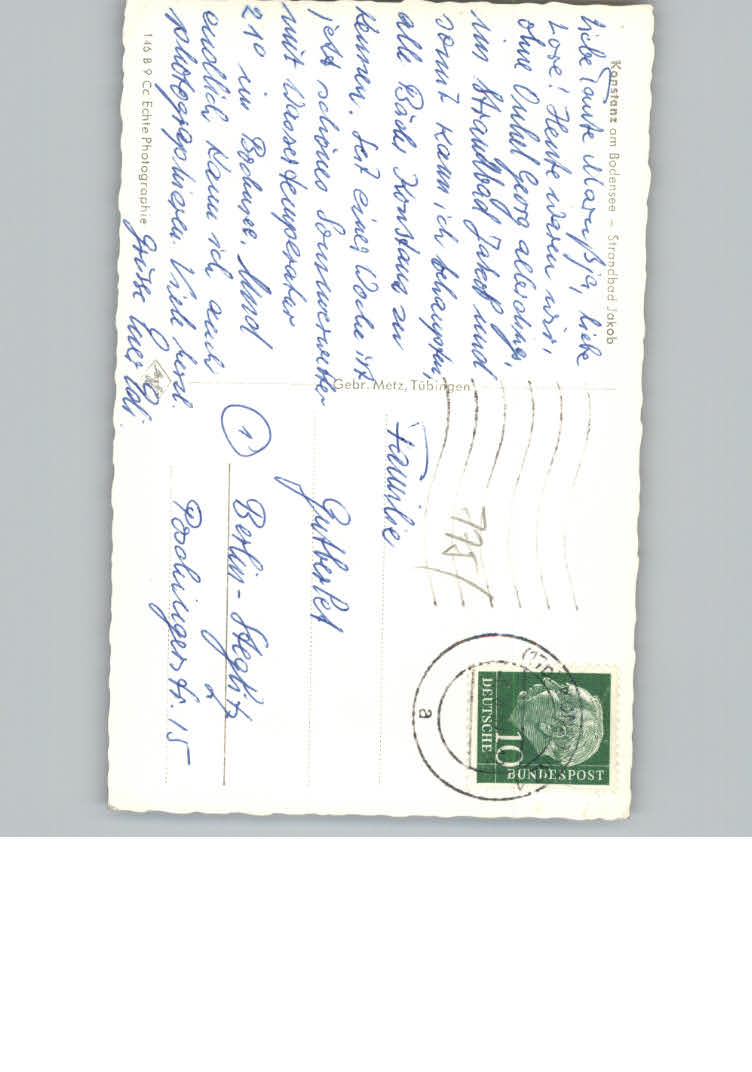 Konstanz am Bodensee – Strandbad Jakob
liebe Tante liebe
Lore! Heute waren wir,
ohne Onkel Georg allerdings,
im Strandbad Jakob und
somit kann ich behaupten,
alle Bäder Konstanz zu
kennen. Seit einer Woche ist
jetzt schönes Sommerwetter
mit Wassertemperatur
21° im Bodensee. Und
endlich kann ich auch
photographieren. Viele herzl.
Grüße Euer
146 B 9 Cc Echte Photographie
Gebr. Metz, Tübingen
775/
DEUTSCHE
10
BUNDESPOST
a
Familie
Gutberlet
1
Berlin-Steglitz
Poschingerstr. 15